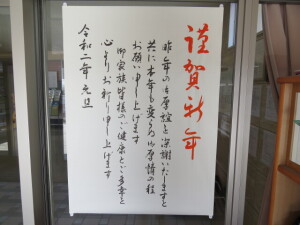 謹賀新年
昨年のご厚誼を深謝いたしますと
共に本年も変らぬご厚情の程
お願い申し上げます
御家族皆様のご健康とご多幸を
心よりお祈り申し上げます
令和二年 元旦